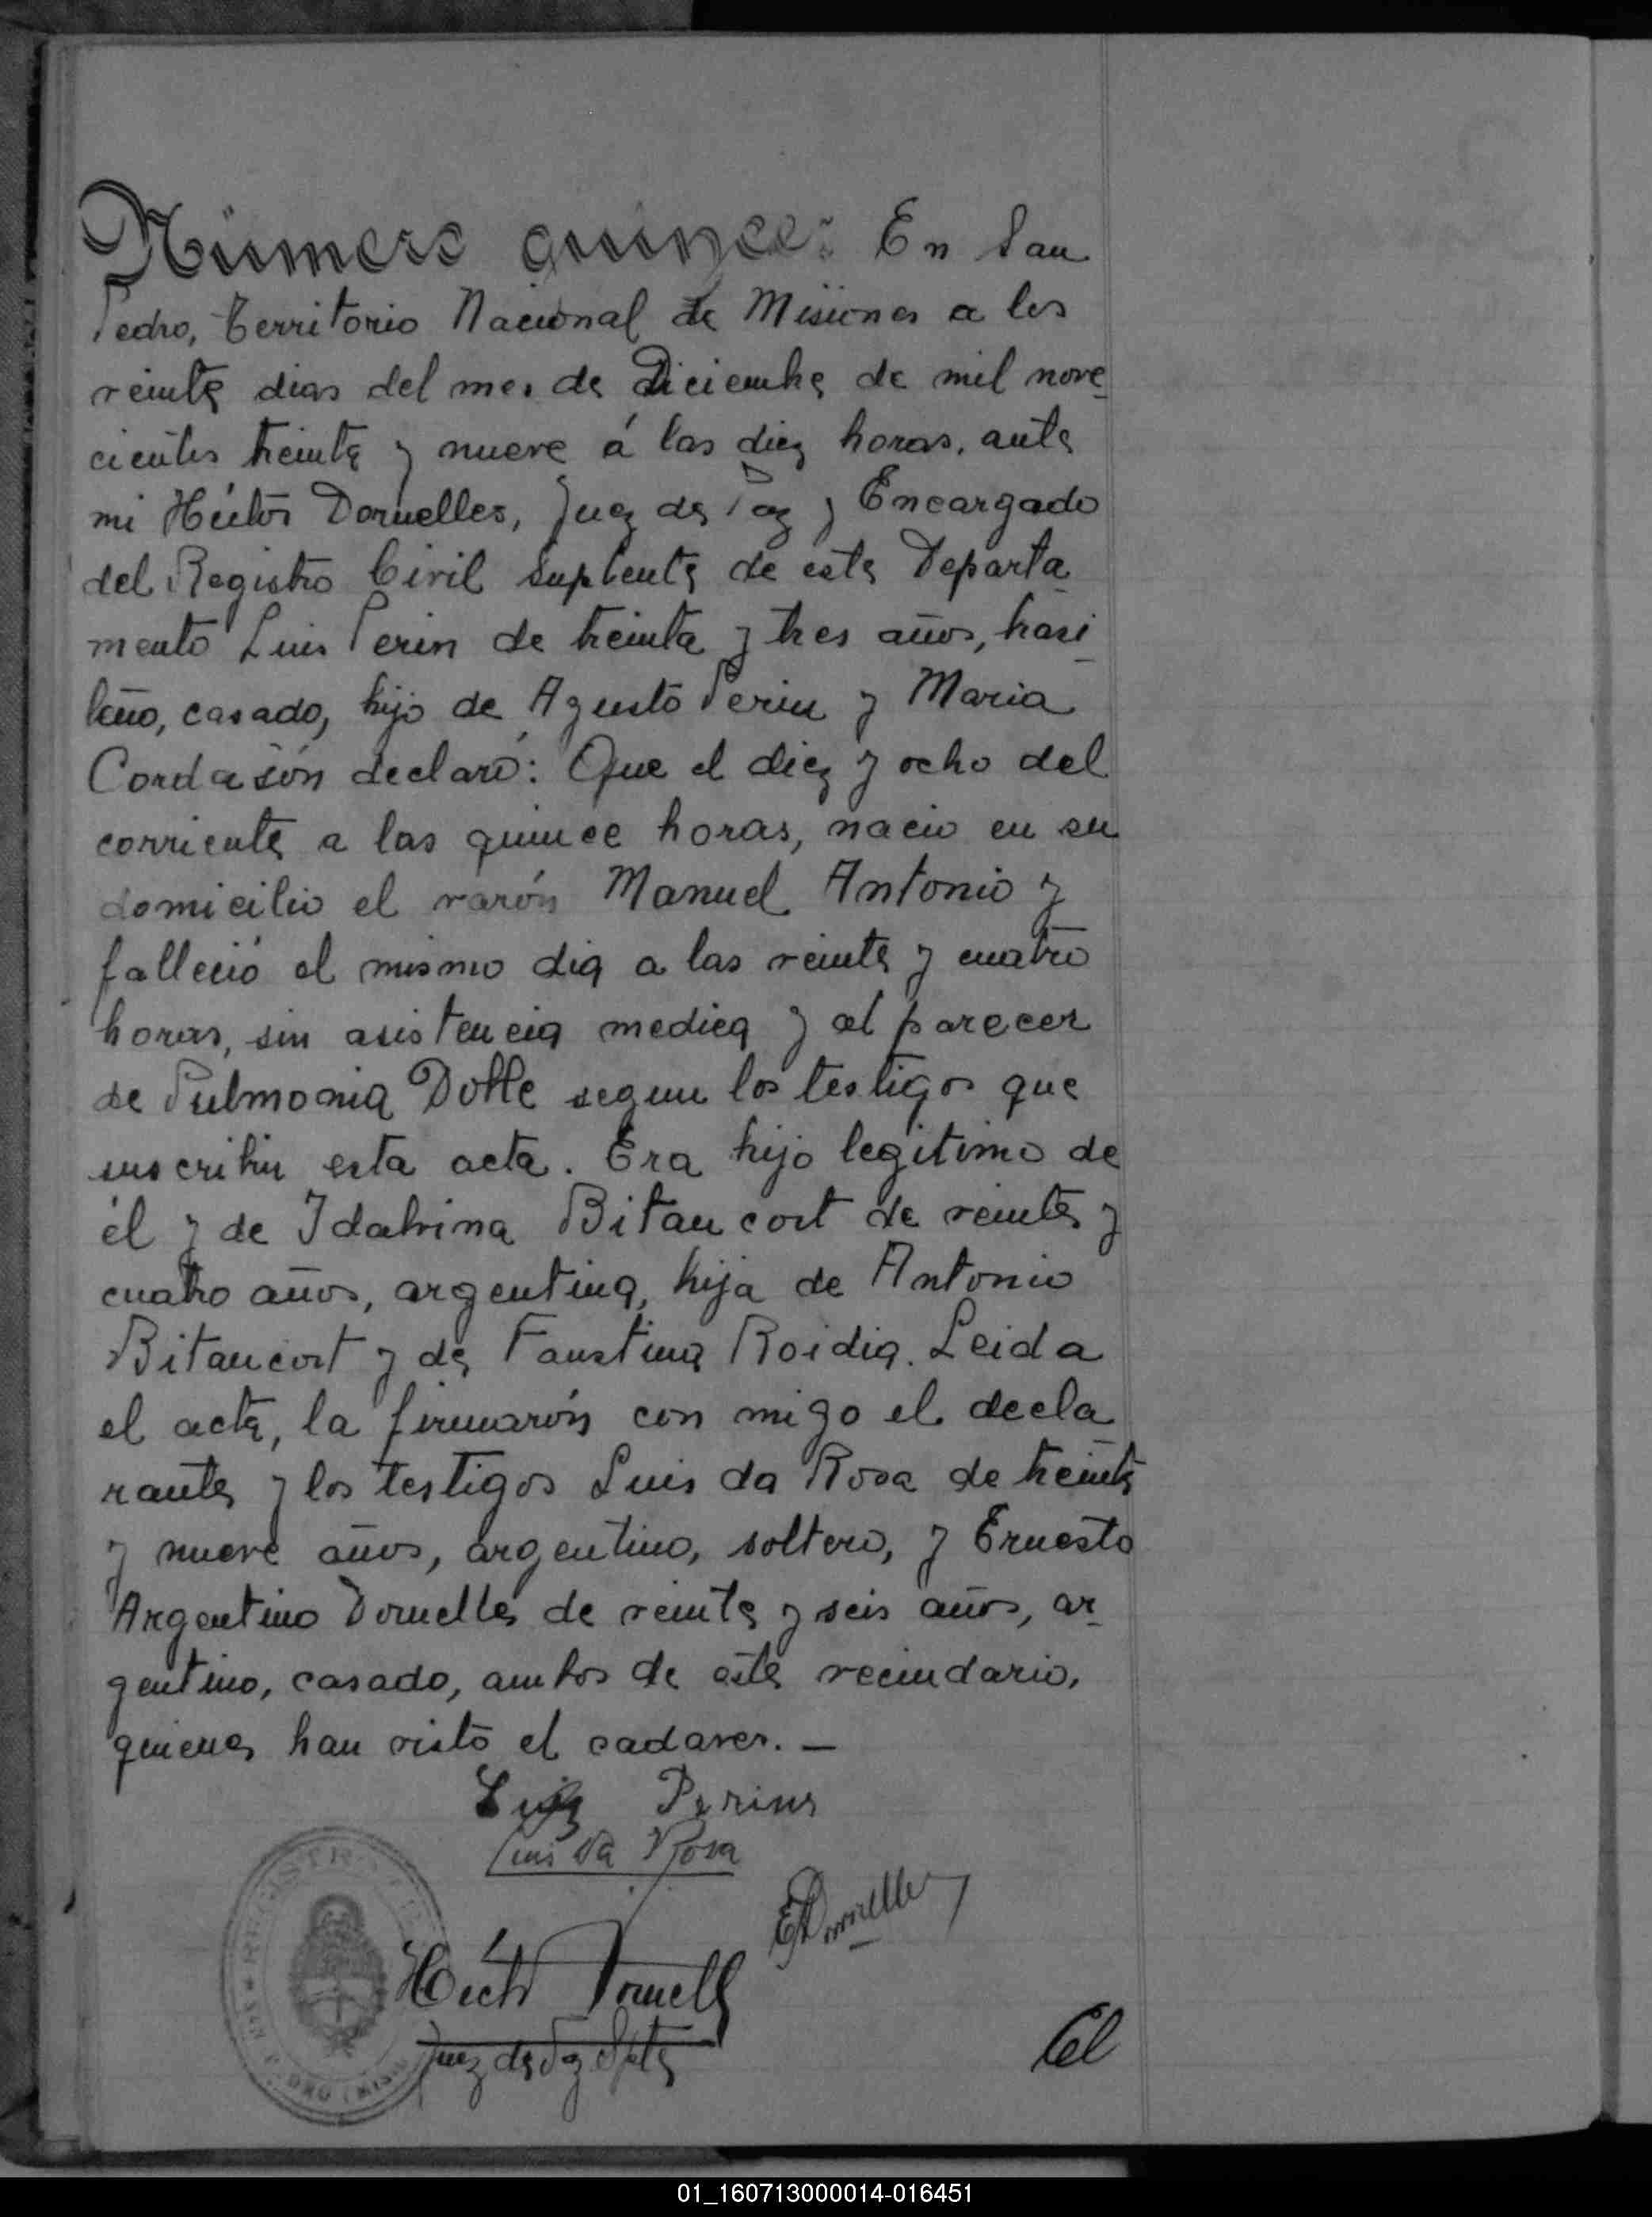 Número quince: En San
Pedro, Territorio Nacional de Misiones a los
veinte dias del mes de Diciembre de mil nove
cientos treinta y nueve á las diez horas, ante
mi Héctor Dornelles, Juez de Paz y Encargado
del Registro Civil Suplente de este Departa
mento Luis Perin de treinta y tres años, brasi
leño, casado, hijo de Agusto Perin y Maria
Cordasón declaró: Que el diez y ocho del
corriente a las quince horas, nacio en su
domicilio el varón Manuel Antonio y
falleció el mismo dia a las veinte y cuatro
horas, sin asistencia medica y al parecer
de Pulmonia Doble segun los testigos que
suscribin esta acta. Era hijo legitimo de
él y de Idabrina Bitancort de veinte y
cuatro años, argentina, hija de Antonio
Bitancort y de Faustina Roidia. Leida
el acta, la firmarón con migo el decla
rante y los testigos Luis da Rosa de treinta
y nueve años, argentino, soltero, y Ernesto
Argentino Dornelles de veinte y seis años, ar
gentino, casado, ambos de este vecindario,
quienes han visto el cadaver. —
Luis Perins
Luis da Rosa
EDornelles
Héctor Dornelles
Juez de Paz Splte
REGISTRO
SAN PEDRO (MIS
El
01_160713000014-016451